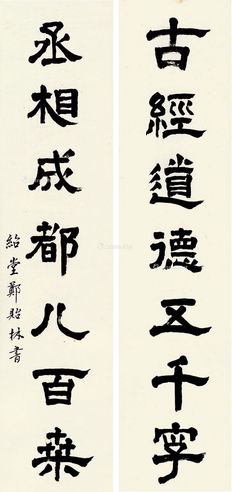 古經道德五千字
丞相成都八百桑
紹堂鄭貽林書